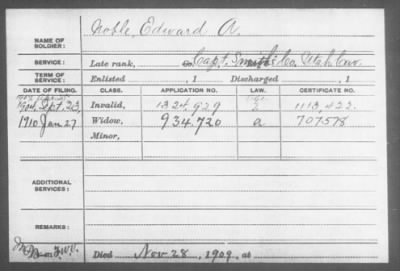 NAME OF SOLDIER: Noble, Edward A.
SERVICE: Late rank, Co. Capt. Smith's Co. Utah Cav.
TERM OF SERVICE: Enlisted , 1 Discharged , 1
DATE OF FILING. CLASS. APPLICATION NO. LAW. CERTIFICATE NO.
1904, Sept. 23, Invalid, 1324,929 1113,422.
1910 Jan 27 Widow, 934.720 a 707578
Minor,
ADDITIONAL SERVICES:
REMARKS:
Died Nov. 28, 1909, at